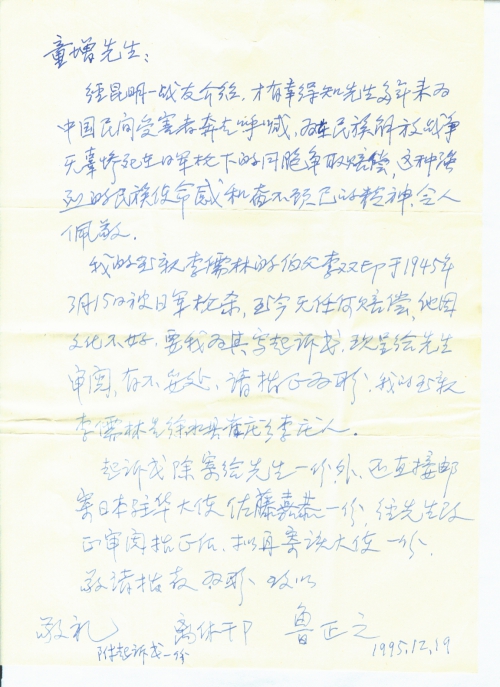 童增先生：
经昆明一战友介绍，才有幸得知先生多年来为
中国民间受害者奔走呼喊，为在民族解放战争
无辜惨死在日军枪下的同胞争取赔偿，这种强
烈的民族使命感和奋不顾己的精神，令人
佩敬．
我的至亲李儒林的伯父李双印于1945年
3月15日被日军枪杀，至今无任何赔偿，他因
文化不好，要我为其写起诉书，现呈给先生
审阅，有不妥处，请指正为盼．我的至亲
李儒林是徐水县 庄乡李庄人．
起诉书除寄给先生一份外，还直接邮
寄日本驻华大使佐藤嘉恭一份，经先生改
正审阅指正后，拟再寄该大使一份．
敬请指教为盼 致以
敬礼 离休干卩 鲁正之
附起诉书一份 1995.12.19